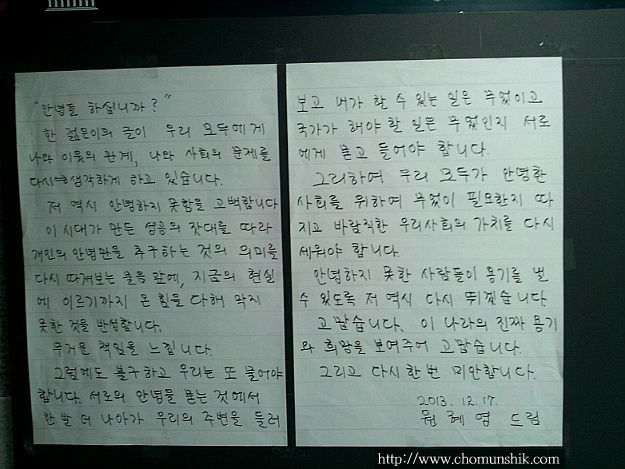 "안녕들 하십니까?"
한 젊은이의 글이 우리 모두에게
나와 이웃의 관계, 나와 사회의 문제를
다시 생각하게 하고 있습니다.
저 역시 안녕하지 못함을 고백합니다
이 시대가 만든 성공의 잣대를 따라
개인의 안녕만을 추구하는 것의 의미를
다시 따져보는 물음 앞에, 지금의 현실
에 이르기까지 온 힘을 다해 막지
못한 것을 반성합니다.
무거운 책임을 느낍니다.
그럼에도 불구하고 우리는 또 물어야
합니다. 서로의 안녕을 묻는 것에서
한 발 더 나아가 우리의 주변을 둘러
보고 내가 할 수 있는 일은 무엇이고
국가가 해야 할 일은 무엇인지 서로
에게 묻고 들어야 합니다.
그리하여 우리 모두가 안녕한
사회를 위하여 무엇이 필요한지 따
지고 바람직한 우리사회의 가치를 다시
세워야 합니다.
안녕하지 못한 사람들이 용기를 낼
수 있도록 저 역시 다시 뛰겠습니다
고맙습니다. 이 나라의 진짜 용기
와 희망을 보여주어 고맙습니다.
그리고 다시 한 번 미안합니다.
2013. 12. 17.
원 혜 영 드림
http://www.chomunshik.com